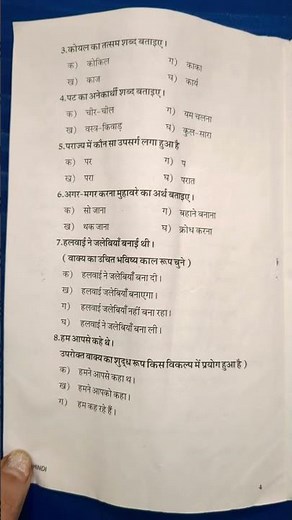 3.कोयल का तत्सम शब्द बताइए।
क) कोकिल ग) काका
ख) काज घ) कार्य
4.पट का अनेकार्थी शब्द बताइए।
क) चीर-चोल ग) यम चलना
ख) वस्त्र-किवाड़ घ) फूल-सारा
5.पराजय में कौन सा उपसर्ग लगा हुआ है
क) पर ग) प
ख) परा घ) परात
6.अगर-मगर करना मुहावरे का अर्थ बताइए।
क) सो जाना ग) बहाने बनाना
ख) थक जाना घ) क्रोध करना
7.हलवाई ने जलेबियाँ बनाई थी।
( वाक्य का उचित भविष्य काल रूप चुने )
क) हलवाई ने जलेबियाँ बना दी।
ख) हलवाई जलेबियाँ बनाएगा।
ग) हलवाई जलेबियाँ नहीं बना रहा।
घ) हलवाई ने जलेबियाँ बना ली।
8.हम आपसे कहे थे।
उपरोक्त वाक्य का शुद्ध रूप किस विकल्प में प्रयोग हुआ है )
क) हमने आपसे कहा था।
ख) हमने आपको कहा।
ग) हम कह रहे हैं।
HINDI
4